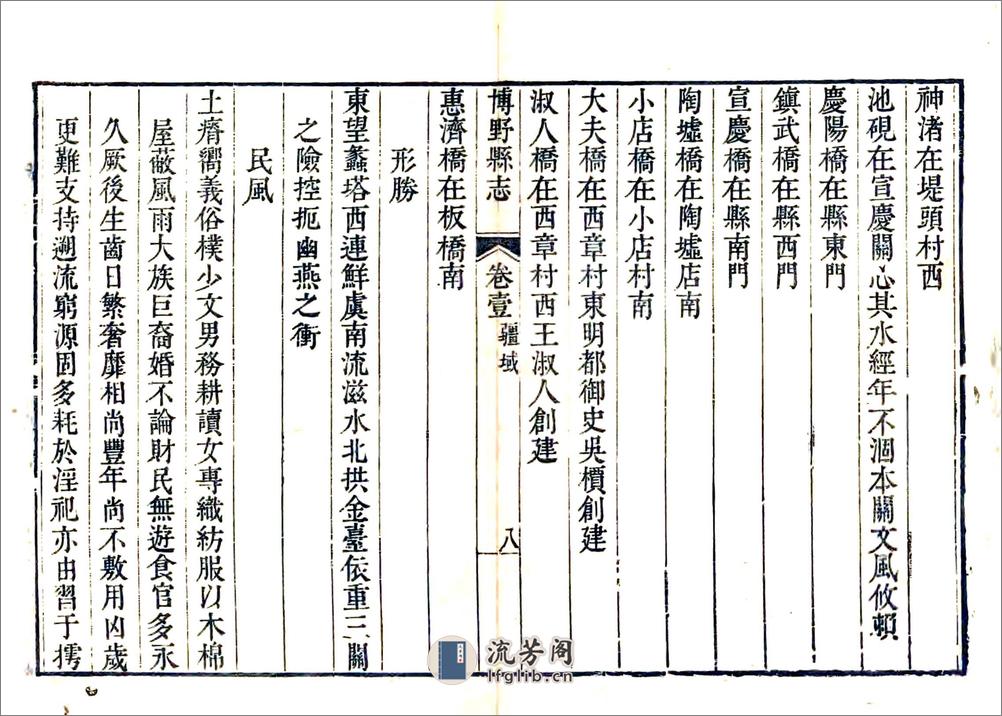 神渚在堤頭村西
池硯在宣慶關心其水經年不涸本關文風攸賴
慶陽橋在縣東門
鎮武橋在縣西門
宣慶橋在縣南門
陶墟橋在陶墟店南
小店橋在小店村南
大夫橋在西章村東明都御史吳檟創建
淑人橋在西章村西王淑人創建
博野縣志
卷壹
疆域
八
惠濟橋在板橋南
形勝
東望蠡塔西連鮮虞南流滋水北拱金臺依重三關
之險控扼幽燕之衝
民風
土瘠嚮義俗樸少文男務耕讀女專織紡服以木棉
屋蔽風雨大族巨裔婚不論財民無遊食官多永
久厥後生齒日繁奢靡相尚豐年尚不敷用凶歲
更難支持遡流窮源固多耗於淫祀亦由習于摴
流芳阁
lfglib.cn